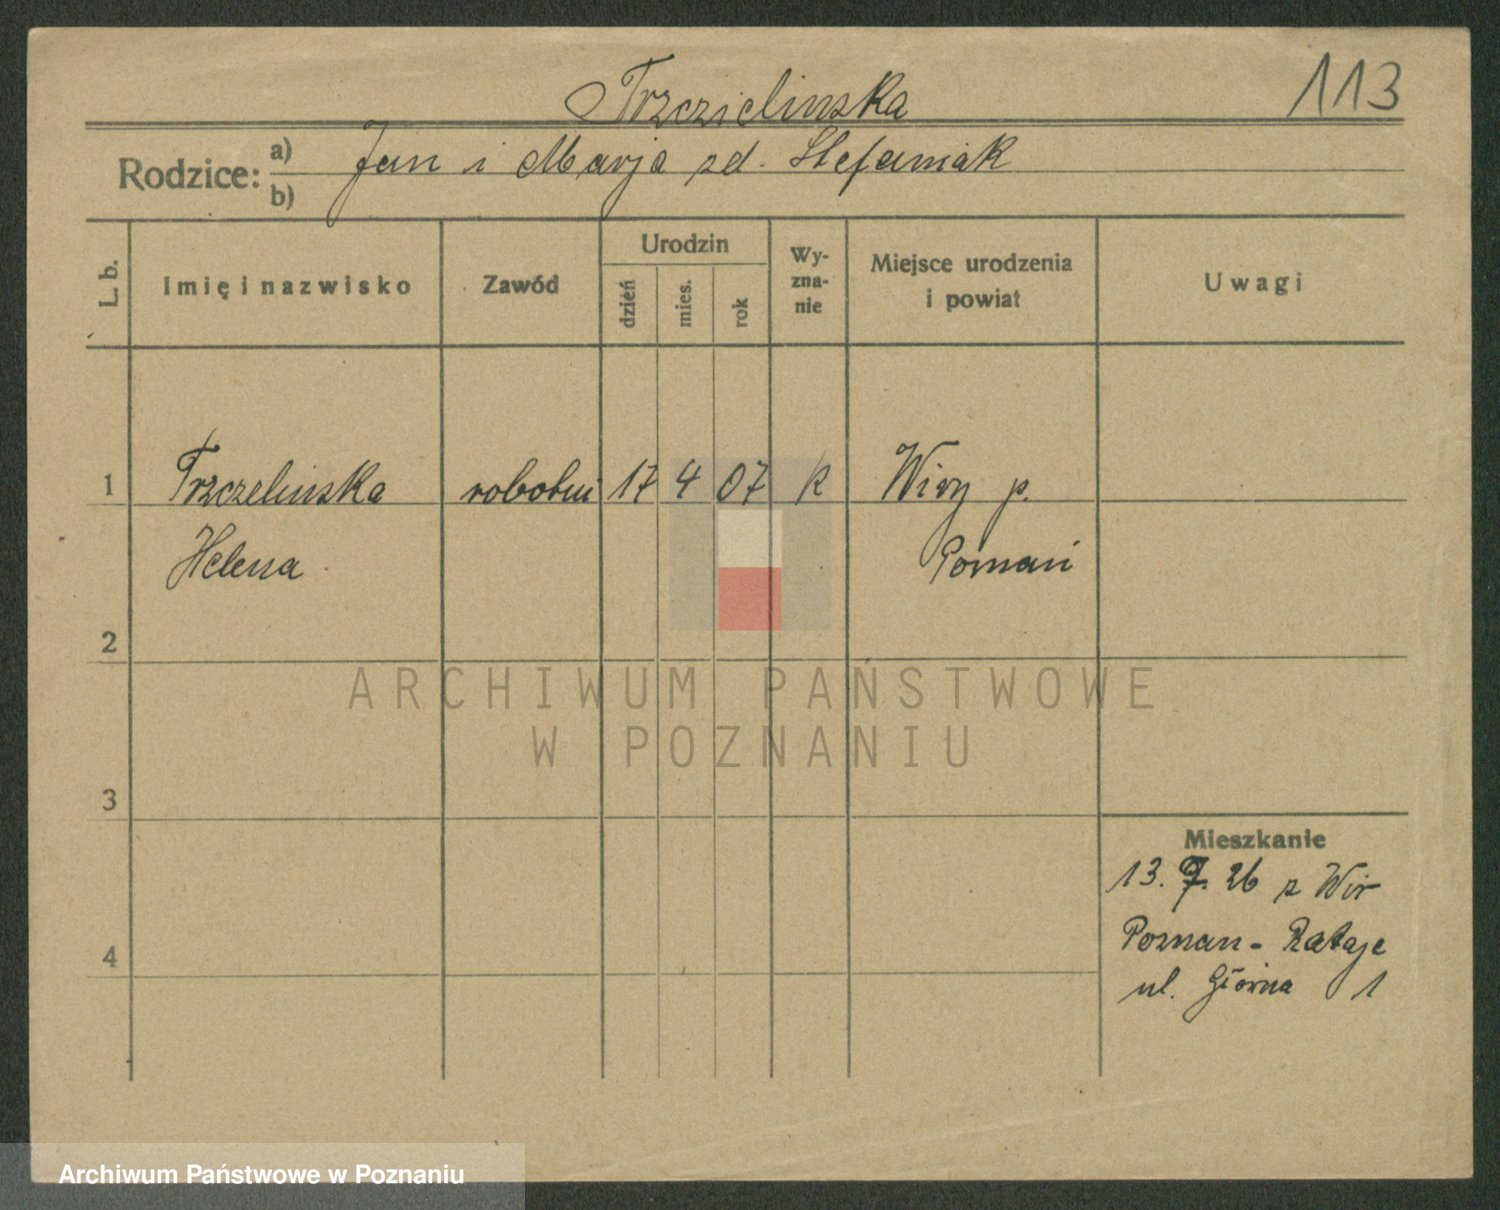 Trzczielinska
113
Rodzice: a) b)
Jan i Marja zd. Stefaniak
L. b.
imię i nazwisko
Zawód
Urodzin
dzień
mies.
rok
Wy-
zna-
nie
Miejsce urodzenia
i powiat
Uwagi
1 Trzczelinska robotni 17 4 07 k Wiry p.
Helena Poznań
2
ARCHIWUM PAŃSTWOWE
W POZNANIU
3
Mieszkanie
13. 26 z Wir
4
Poznan - Rataje
ul. Górna 1
Archiwum Państwowe w Poznaniu